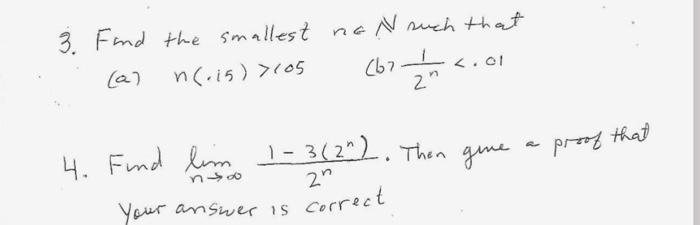 3. Find the smallest n ∈ N such that
(a) n(.15) > 105 (b) 1/2^n < .01
4. Find lim n→∞ (1 - 3(2^n))/2^n. Then give a proof that
your answer is correct